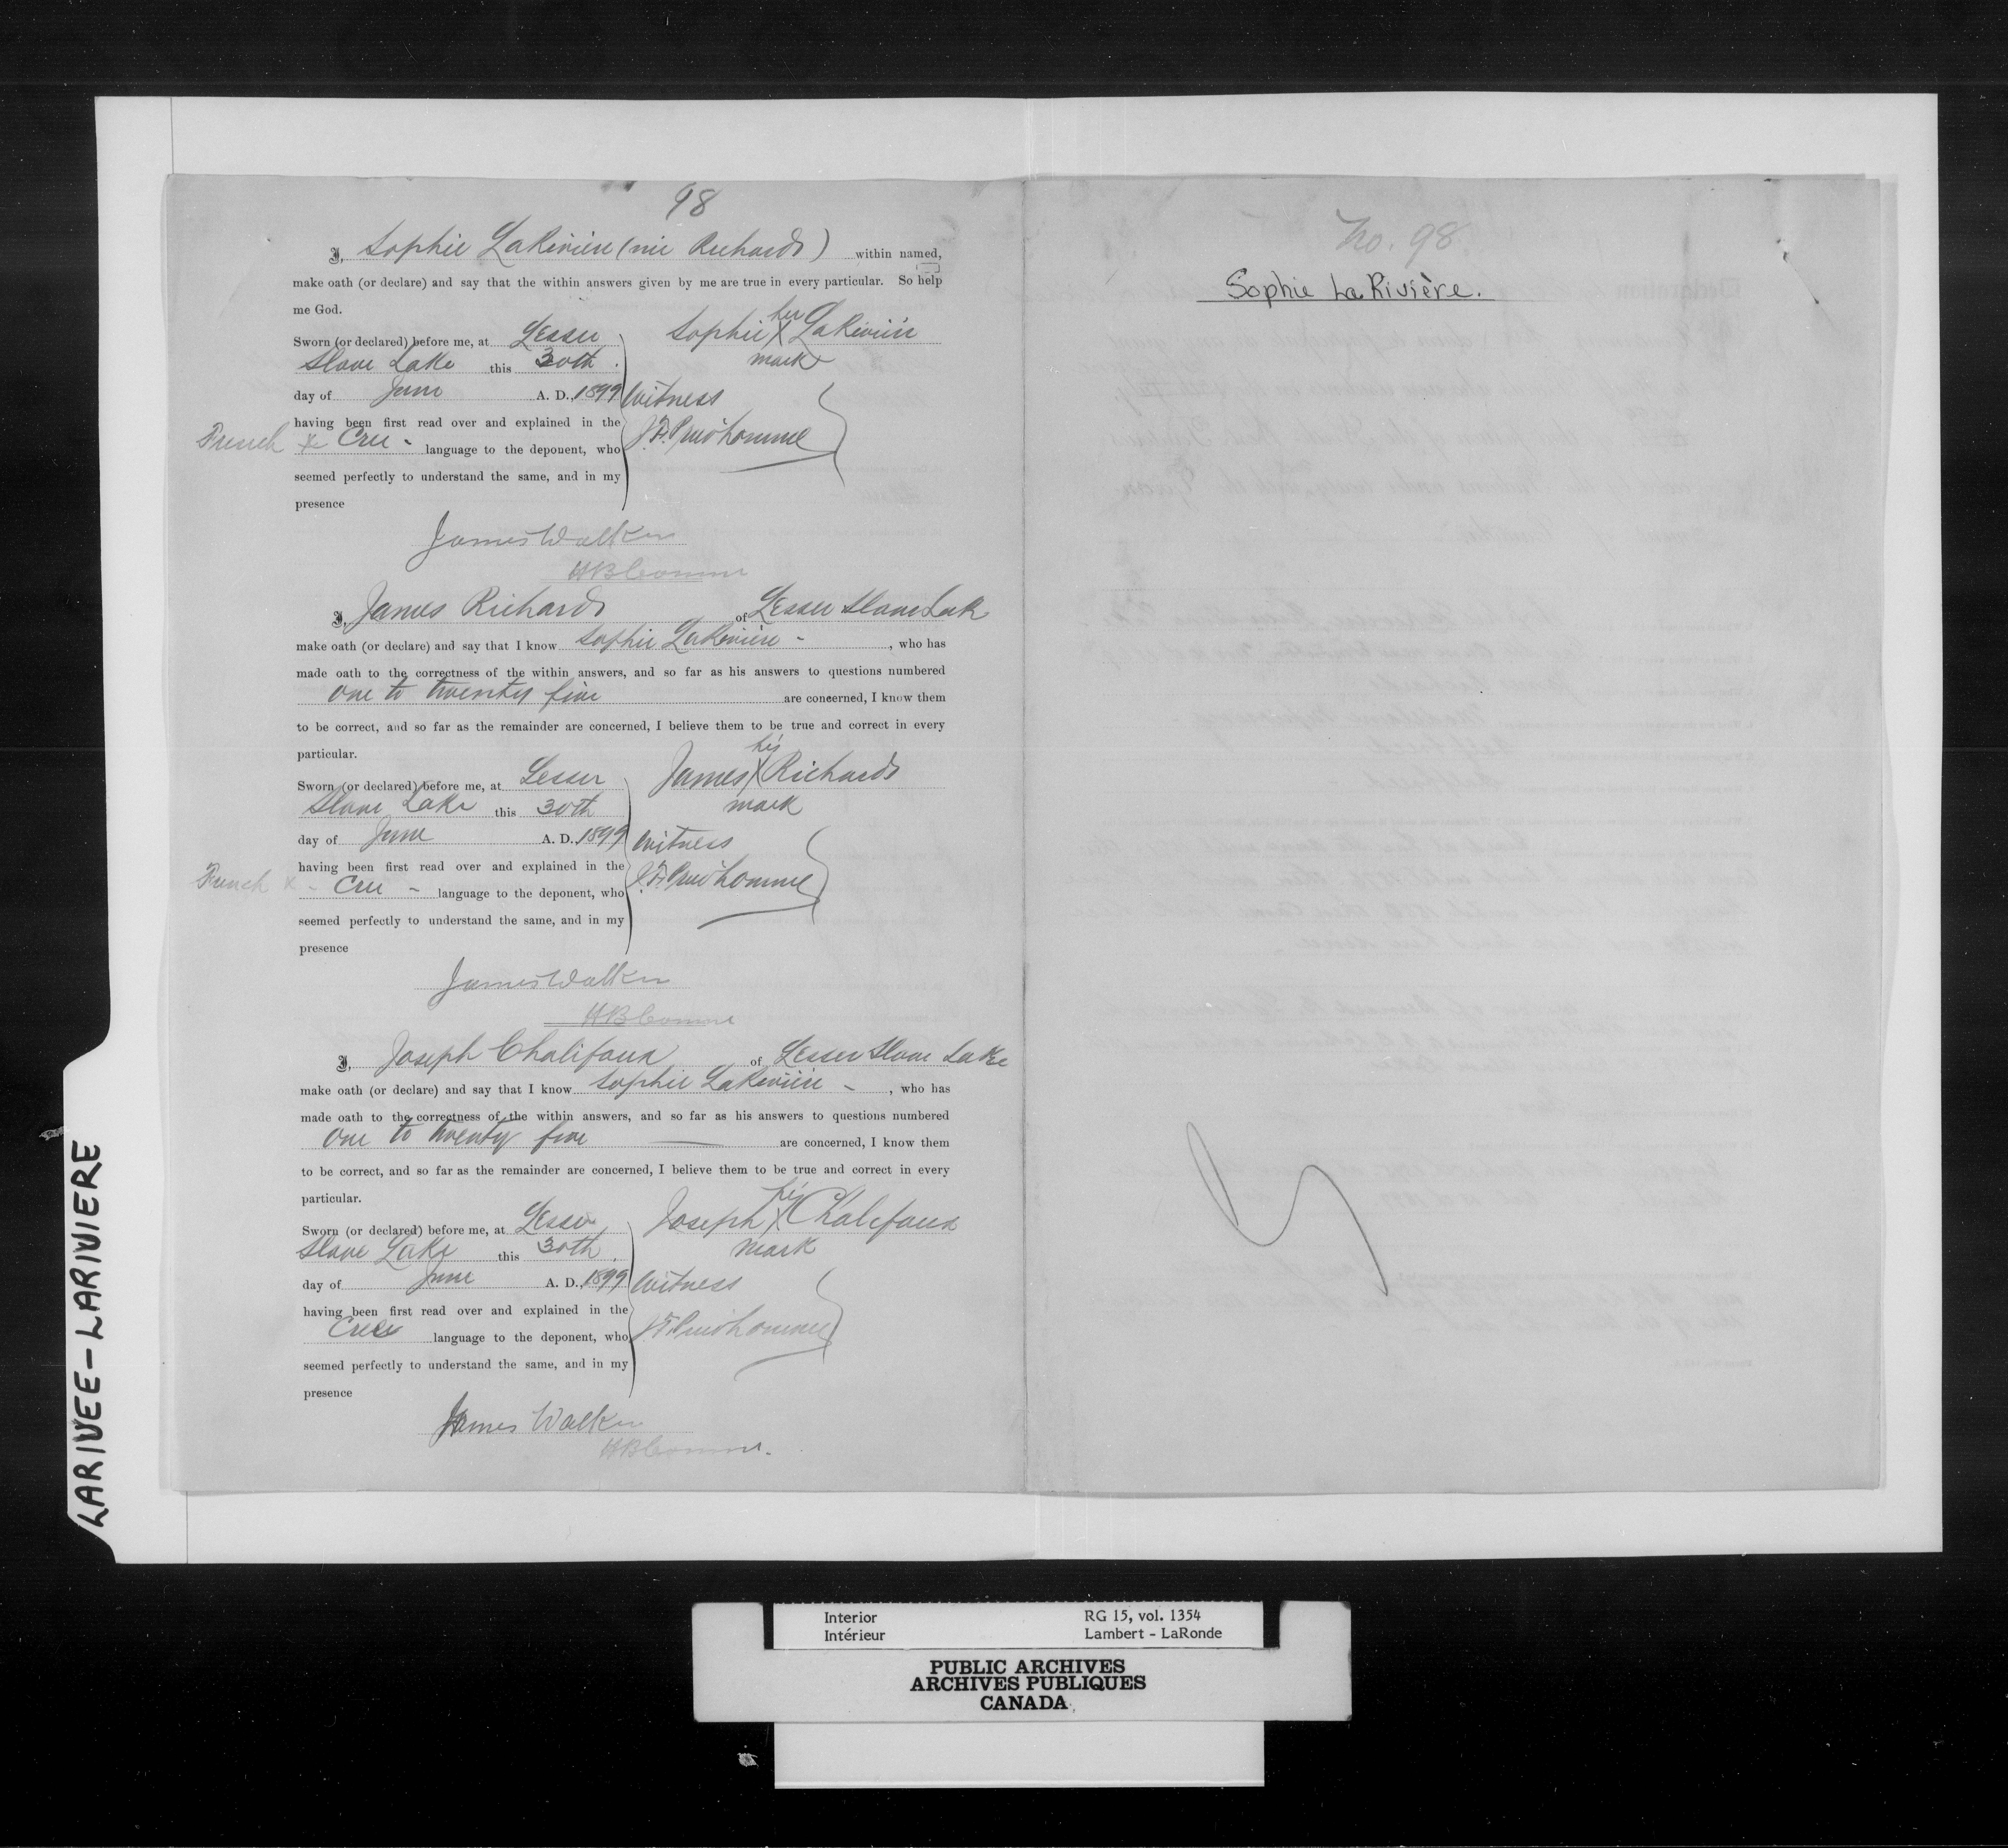 98
I, Sophie LaRiviere (nee Richards) within named,
make oath (or declare) and say that the within answers given by me are true in every particular. So help
me God.
Sworn (or declared) before me, at Lesser
Slave Lake this 30th
day of June A. D., 1899
having been first read over and explained in the
French & Cree - language to the deponent, who
seemed perfectly to understand the same, and in my
presence
Sophie her X LaRiviere
mark
Witness
J. F. Prudhomme
James Walker
HB Commr
I, James Richards of Lesser Slave Lake
make oath (or declare) and say that I know Sophie LaRiviere - , who has
made oath to the correctness of the within answers, and so far as his answers to questions numbered
one to twenty five are concerned, I know them
to be correct, and so far as the remainder are concerned, I believe them to be true and correct in every
particular.
Sworn (or declared) before me, at Lesser
Slave Lake this 30th
day of June A. D., 1899
having been first read over and explained in the
French x - Cree - language to the deponent, who
seemed perfectly to understand the same, and in my
presence
James his X Richards
mark
Witness
J. F. Prudhomme
James Walker
HB Commr
I, Joseph Chalifoux of Lesser Slave Lake
make oath (or declare) and say that I know Sophie LaRiviere - , who has
made oath to the correctness of the within answers, and so far as his answers to questions numbered
one to twenty five — are concerned, I know them
to be correct, and so far as the remainder are concerned, I believe them to be true and correct in every
particular.
Sworn (or declared) before me, at Lesser
Slave Lake this 30th
day of June A. D., 1899
having been first read over and explained in the
Cree language to the deponent, who
seemed perfectly to understand the same, and in my
presence
Joseph his X Chalifoux
mark
Witness
J. F. Prudhomme
James Walker
HB Commr.
No. 98.
Sophie LaRivière.
LARIVEE-LARIVIERE
Interior RG 15, vol. 1354
Intérieur Lambert - LaRonde
PUBLIC ARCHIVES
ARCHIVES PUBLIQUES
CANADA